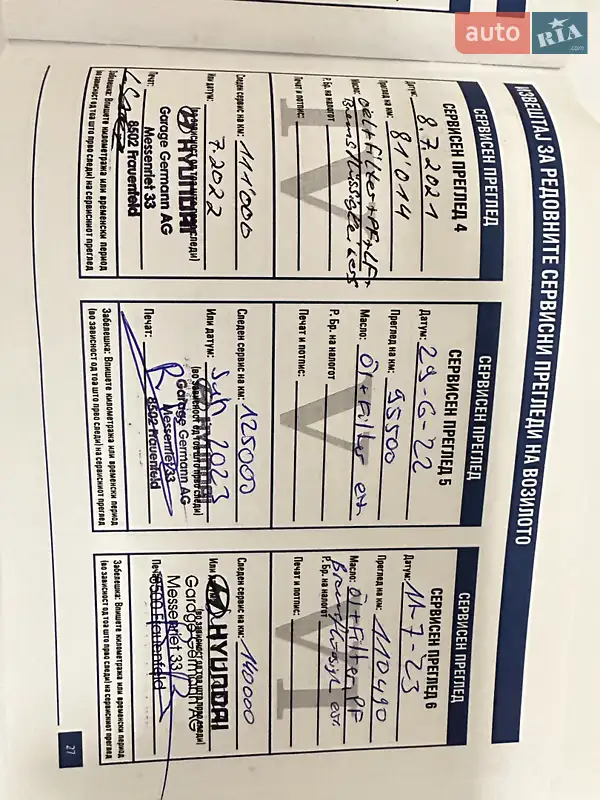 auto RIA.com
ИЗВЕШТАЈ ЗА РЕДОВНИТЕ СЕРВИСНИ ПРЕГЛЕДИ НА ВОЗИЛОТО
СЕРВИСЕН ПРЕГЛЕД
СЕРВИСЕН ПРЕГЛЕД 4
Датум: 8.7.2021
Преглед на км: 81'014
Масло: Oel+Filter+PF+LF+
Bremsflüssigkeit ers
Р. Бр. на налогот
Печат и потпис:
Следен сервис на км: 111'000
Или датум: 7.2022
(во зависност од тоа што прво следи)
HYUNDAI
Garage Germann AG
Messenriet 33
8502 Frauenfeld
Печат:
Забелешка: Впишете километража или временски период
(во зависност од тоа што прво следи) на сервисниот преглед
СЕРВИСЕН ПРЕГЛЕД
СЕРВИСЕН ПРЕГЛЕД 5
Датум: 29-6-22
Преглед на км: 95500
Масло: Öl+Filter ers.
Р. Бр. на налогот
Печат и потпис:
Следен сервис на км: 125000
Или датум: 2023
(во зависност од тоа што прво следи)
Garage Germann AG
Messenriet 33
8502 Frauenfeld
Печат:
Забелешка: Впишете километража или временски период
(во зависност од тоа што прво следи) на сервисниот преглед
СЕРВИСЕН ПРЕГЛЕД
СЕРВИСЕН ПРЕГЛЕД 6
Датум: 11-7-23
Преглед на км: 110490
Масло: Öl+Filter, PF
ers.
Р. Бр. на налогот
Печат и потпис:
Следен сервис на км: 140000
Или
HYUNDAI
(во зависност од тоа што прво следи)
Garage Germann AG
Messenriet 33
8500 Frauenfeld
Забелешка: Впишете километража или временски период
(во зависност од тоа што прво следи) на сервисниот преглед
27